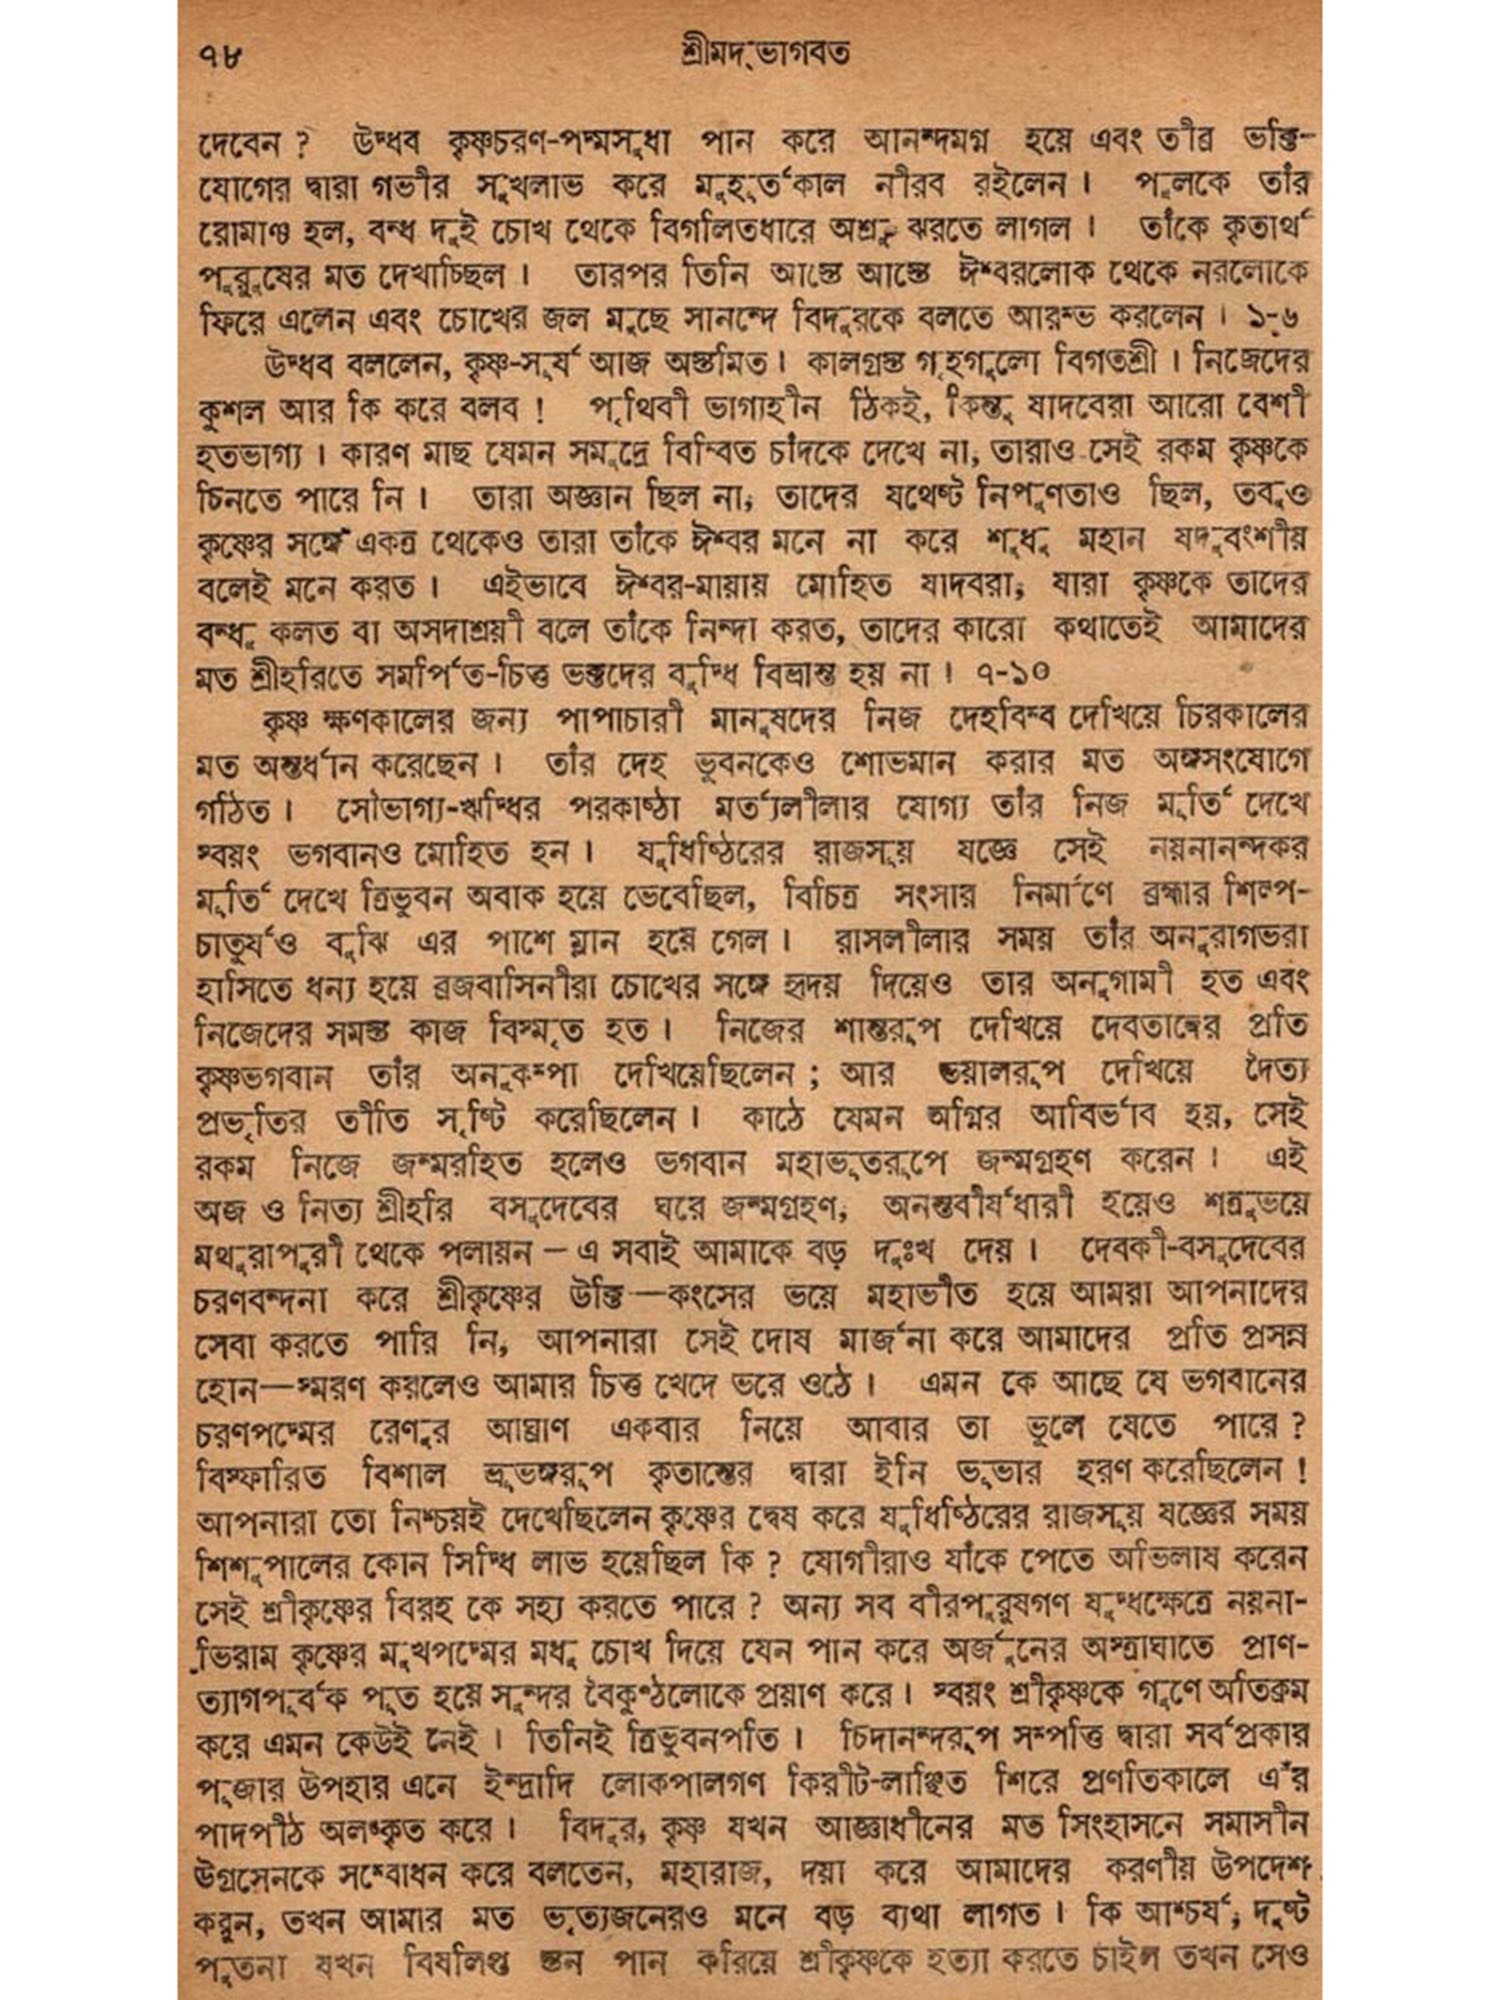 ৭৮ শ্রীমদ্ভাগবত
দেবেন ? উদ্ধব কৃষ্ণচরণ-পদ্মসুধা পান করে আনন্দমগ্ন হয়ে এবং তীব্র ভক্তি-
যোগের দ্বারা গভীর সুখলাভ করে মুহূর্তকাল নীরব রইলেন । পুলকে তাঁর
রোমাঞ্চ হল, বন্ধ দুই চোখ থেকে বিগলিতধারে অশ্রু ঝরতে লাগল । তাঁকে কৃতার্থ
পুরুষের মত দেখাচ্ছিল । তারপর তিনি আস্তে আস্তে ঈশ্বরলোক থেকে নরলোকে
ফিরে এলেন এবং চোখের জল মুছে সানন্দে বিদুরকে বলতে আরম্ভ করলেন । ১-৬
উদ্ধব বললেন, কৃষ্ণ-সূর্য আজ অস্তমিত । কালগ্রস্ত গৃহগুলো বিগতশ্রী । নিজেদের
কুশল আর কি করে বলব ! পৃথিবী ভাগ্যহীন ঠিকই, কিন্তু যাদবেরা আরো বেশী
হতভাগ্য । কারণ মাছ যেমন সমুদ্রে বিম্বিত চাঁদকে দেখে না, তারাও সেই রকম কৃষ্ণকে
চিনতে পারে নি । তারা অজ্ঞান ছিল না, তাদের যথেষ্ট নিপুণতাও ছিল, তবুও
কৃষ্ণের সঙ্গে একত্র থেকেও তারা তাঁকে ঈশ্বর মনে না করে শুধু মহান যদুবংশীয়
বলেই মনে করত । এইভাবে ঈশ্বর-মায়ায় মোহিত যাদবরা, যারা কৃষ্ণকে তাদের
বন্ধু কলত বা অসদাশ্রয়ী বলে তাঁকে নিন্দা করত, তাদের কারো কথাতেই আমাদের
মত শ্রীহরিতে সমর্পিত-চিত্ত ভক্তদের বুদ্ধি বিভ্রান্ত হয় না । ৭-১০
কৃষ্ণ ক্ষণকালের জন্য পাপাচারী মানুষদের নিজ দেহবিম্ব দেখিয়ে চিরকালের
মত অন্তর্ধান করেছেন । তাঁর দেহ ভুবনকেও শোভমান করার মত অঙ্গসংযোগে
গঠিত । সৌভাগ্য-ঋদ্ধির পরকাষ্ঠা মর্ত্যলীলার যোগ্য তাঁর নিজ মূর্তি দেখে
স্বয়ং ভগবানও মোহিত হন । যুধিষ্ঠিরের রাজসূয় যজ্ঞে সেই নয়নানন্দকর
মূর্তি দেখে ত্রিভুবন অবাক হয়ে ভেবেছিল, বিচিত্র সংসার নির্মাণে ব্রহ্মার শিল্প-
চাতুর্যও বুঝি এর পাশে ম্লান হয়ে গেল । রাসলীলার সময় তাঁর অনুরাগভরা
হাসিতে ধন্য হয়ে ব্রজবাসিনীরা চোখের সঙ্গে হৃদয় দিয়েও তার অনুগামী হত এবং
নিজেদের সমস্ত কাজ বিস্মৃত হত । নিজের শান্তরূপ দেখিয়ে দেবতাদের প্রতি
কৃষ্ণভগবান তাঁর অনুকম্পা দেখিয়েছিলেন ; আর ভয়ালরূপ দেখিয়ে দৈত্য
প্রভৃতির ভীতি সৃষ্টি করেছিলেন । কাঠে যেমন অগ্নির আবির্ভাব হয়, সেই
রকম নিজে জন্মরহিত হলেও ভগবান মহাভূতরূপে জন্মগ্রহণ করেন । এই
অজ ও নিত্য শ্রীহরি বসুদেবের ঘরে জন্মগ্রহণ, অনন্তবীর্যধারী হয়েও শত্রুভয়ে
মথুরাপুরী থেকে পলায়ন – এ সবাই আমাকে বড় দুঃখ দেয় । দেবকী-বসুদেবের
চরণবন্দনা করে শ্রীকৃষ্ণের উক্তি—কংসের ভয়ে মহাভীত হয়ে আমরা আপনাদের
সেবা করতে পারি নি, আপনারা সেই দোষ মার্জনা করে আমাদের প্রতি প্রসন্ন
হোন—স্মরণ করলেও আমার চিত্ত খেদে ভরে ওঠে । এমন কে আছে যে ভগবানের
চরণপদ্মের রেণুর আঘ্রাণ একবার নিয়ে আবার তা ভুলে যেতে পারে ?
বিস্ফারিত বিশাল ভ্রূভঙ্গরূপ কৃতান্তের দ্বারা ইনি ভূভার হরণ করেছিলেন !
আপনারা তো নিশ্চয়ই দেখেছিলেন কৃষ্ণের দ্বেষ করে যুধিষ্ঠিরের রাজসূয় যজ্ঞের সময়
শিশুপালের কোন সিদ্ধি লাভ হয়েছিল কি ? যোগীরাও যাঁকে পেতে অভিলাষ করেন
সেই শ্রীকৃষ্ণের বিরহ কে সহ্য করতে পারে ? অন্য সব বীরপুরুষগণ যুদ্ধক্ষেত্রে নয়না-
ভিরাম কৃষ্ণের মুখপদ্মের মধু চোখ দিয়ে যেন পান করে অর্জুনের অস্ত্রাঘাতে প্রাণ-
ত্যাগপূর্বক পূত হয়ে সুন্দর বৈকুণ্ঠলোকে প্রয়াণ করে । স্বয়ং শ্রীকৃষ্ণকে গুণে অতিক্রম
করে এমন কেউই নেই । তিনিই ত্রিভুবনপতি । চিদানন্দরূপ সম্পত্তি দ্বারা সর্বপ্রকার
পূজার উপহার এনে ইন্দ্রাদি লোকপালগণ কিরীট-লাঞ্ছিত শিরে প্রণতিকালে এঁর
পাদপীঠ অলঙ্কৃত করে । বিদুর, কৃষ্ণ যখন আজ্ঞাধীনের মত সিংহাসনে সমাসীন
উগ্রসেনকে সম্বোধন করে বলতেন, মহারাজ, দয়া করে আমাদের করণীয় উপদেশ
করুন, তখন আমার মত ভৃত্যজনেরও মনে বড় ব্যথা লাগত । কি আশ্চর্য, দুষ্ট
পূতনা যখন বিষলিপ্ত স্তন পান করিয়ে শ্রীকৃষ্ণকে হত্যা করতে চাইল তখন সেও